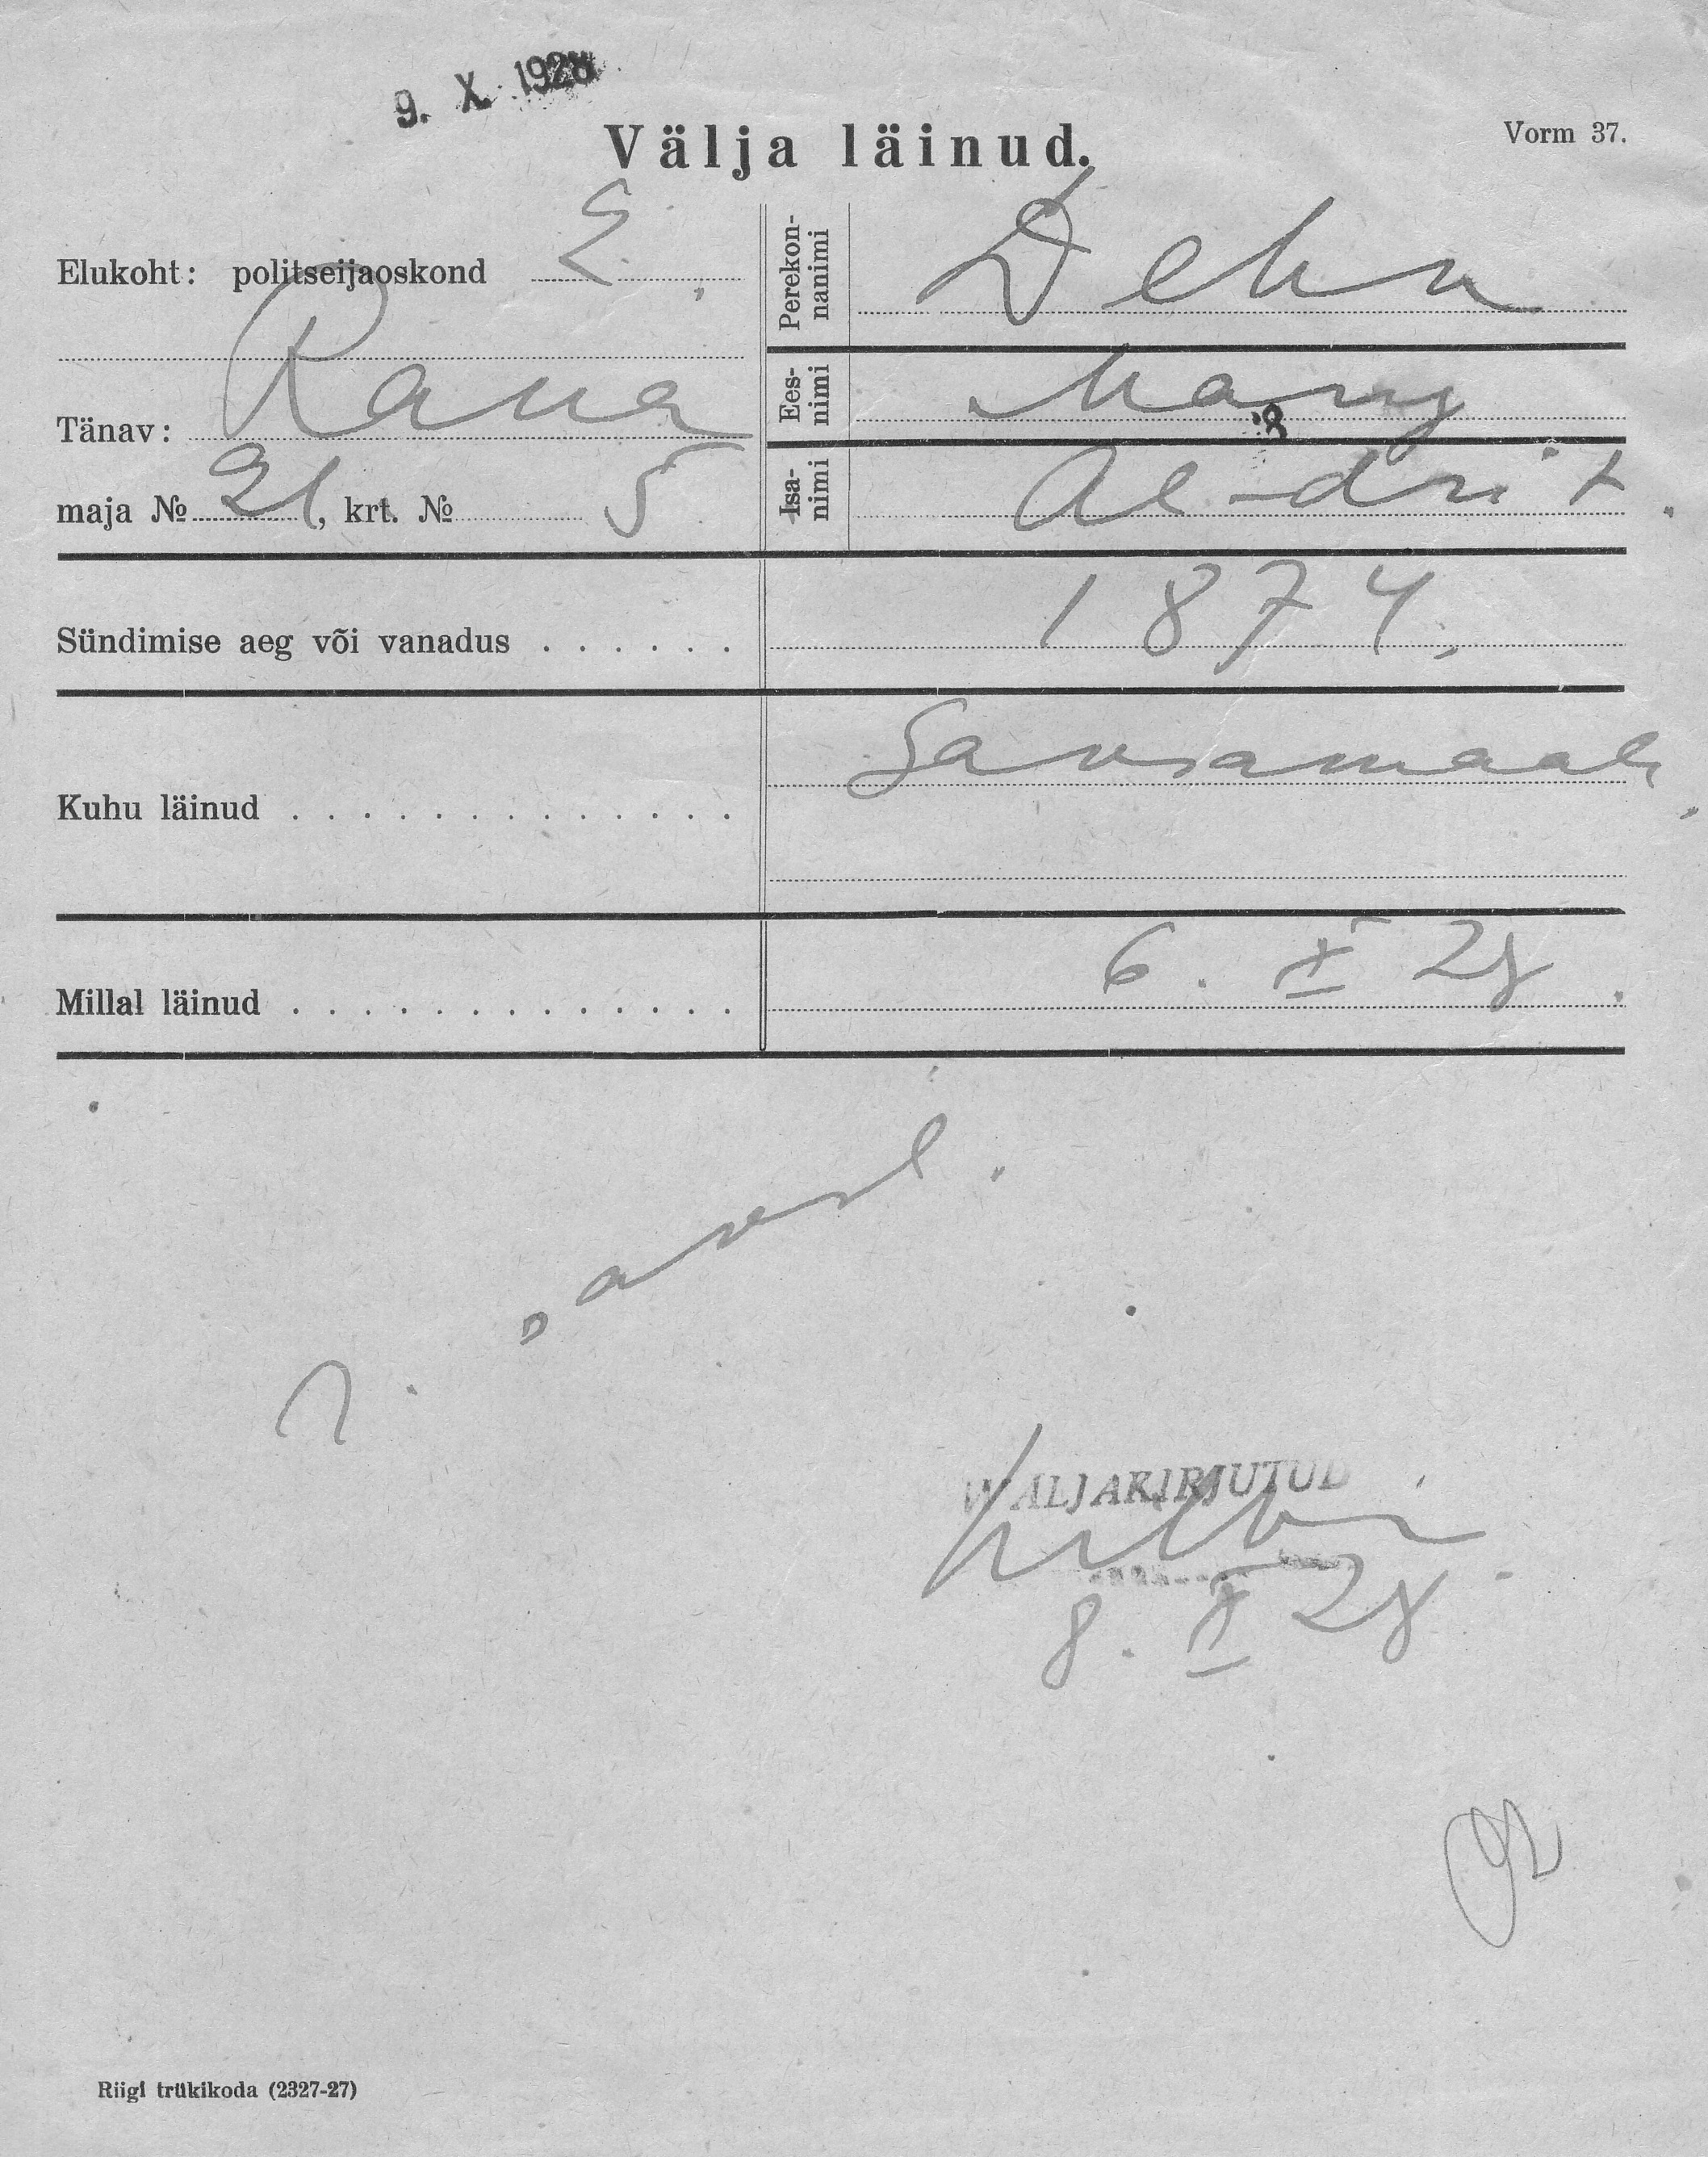 9. X. 1928
Välja läinud.
Vorm 37.
Elukoht: politseijaoskond E.
Tänav: Raua
maja № 21, krt. № 5
Perekon-
nanimi
Dehn
Ees-
nimi
Mary
Isa-
nimi
Al-dri t.
Sündimise aeg või vanadus . . . . . . 1874.
Kuhu läinud . . . . . . . . . . . . . . Saksamaale
Millal läinud . . . . . . . . . . . . . . 6. X 28.
WÄLJAKIRJUTUD
8. X 28
Riigi trükikoda (2327-27)